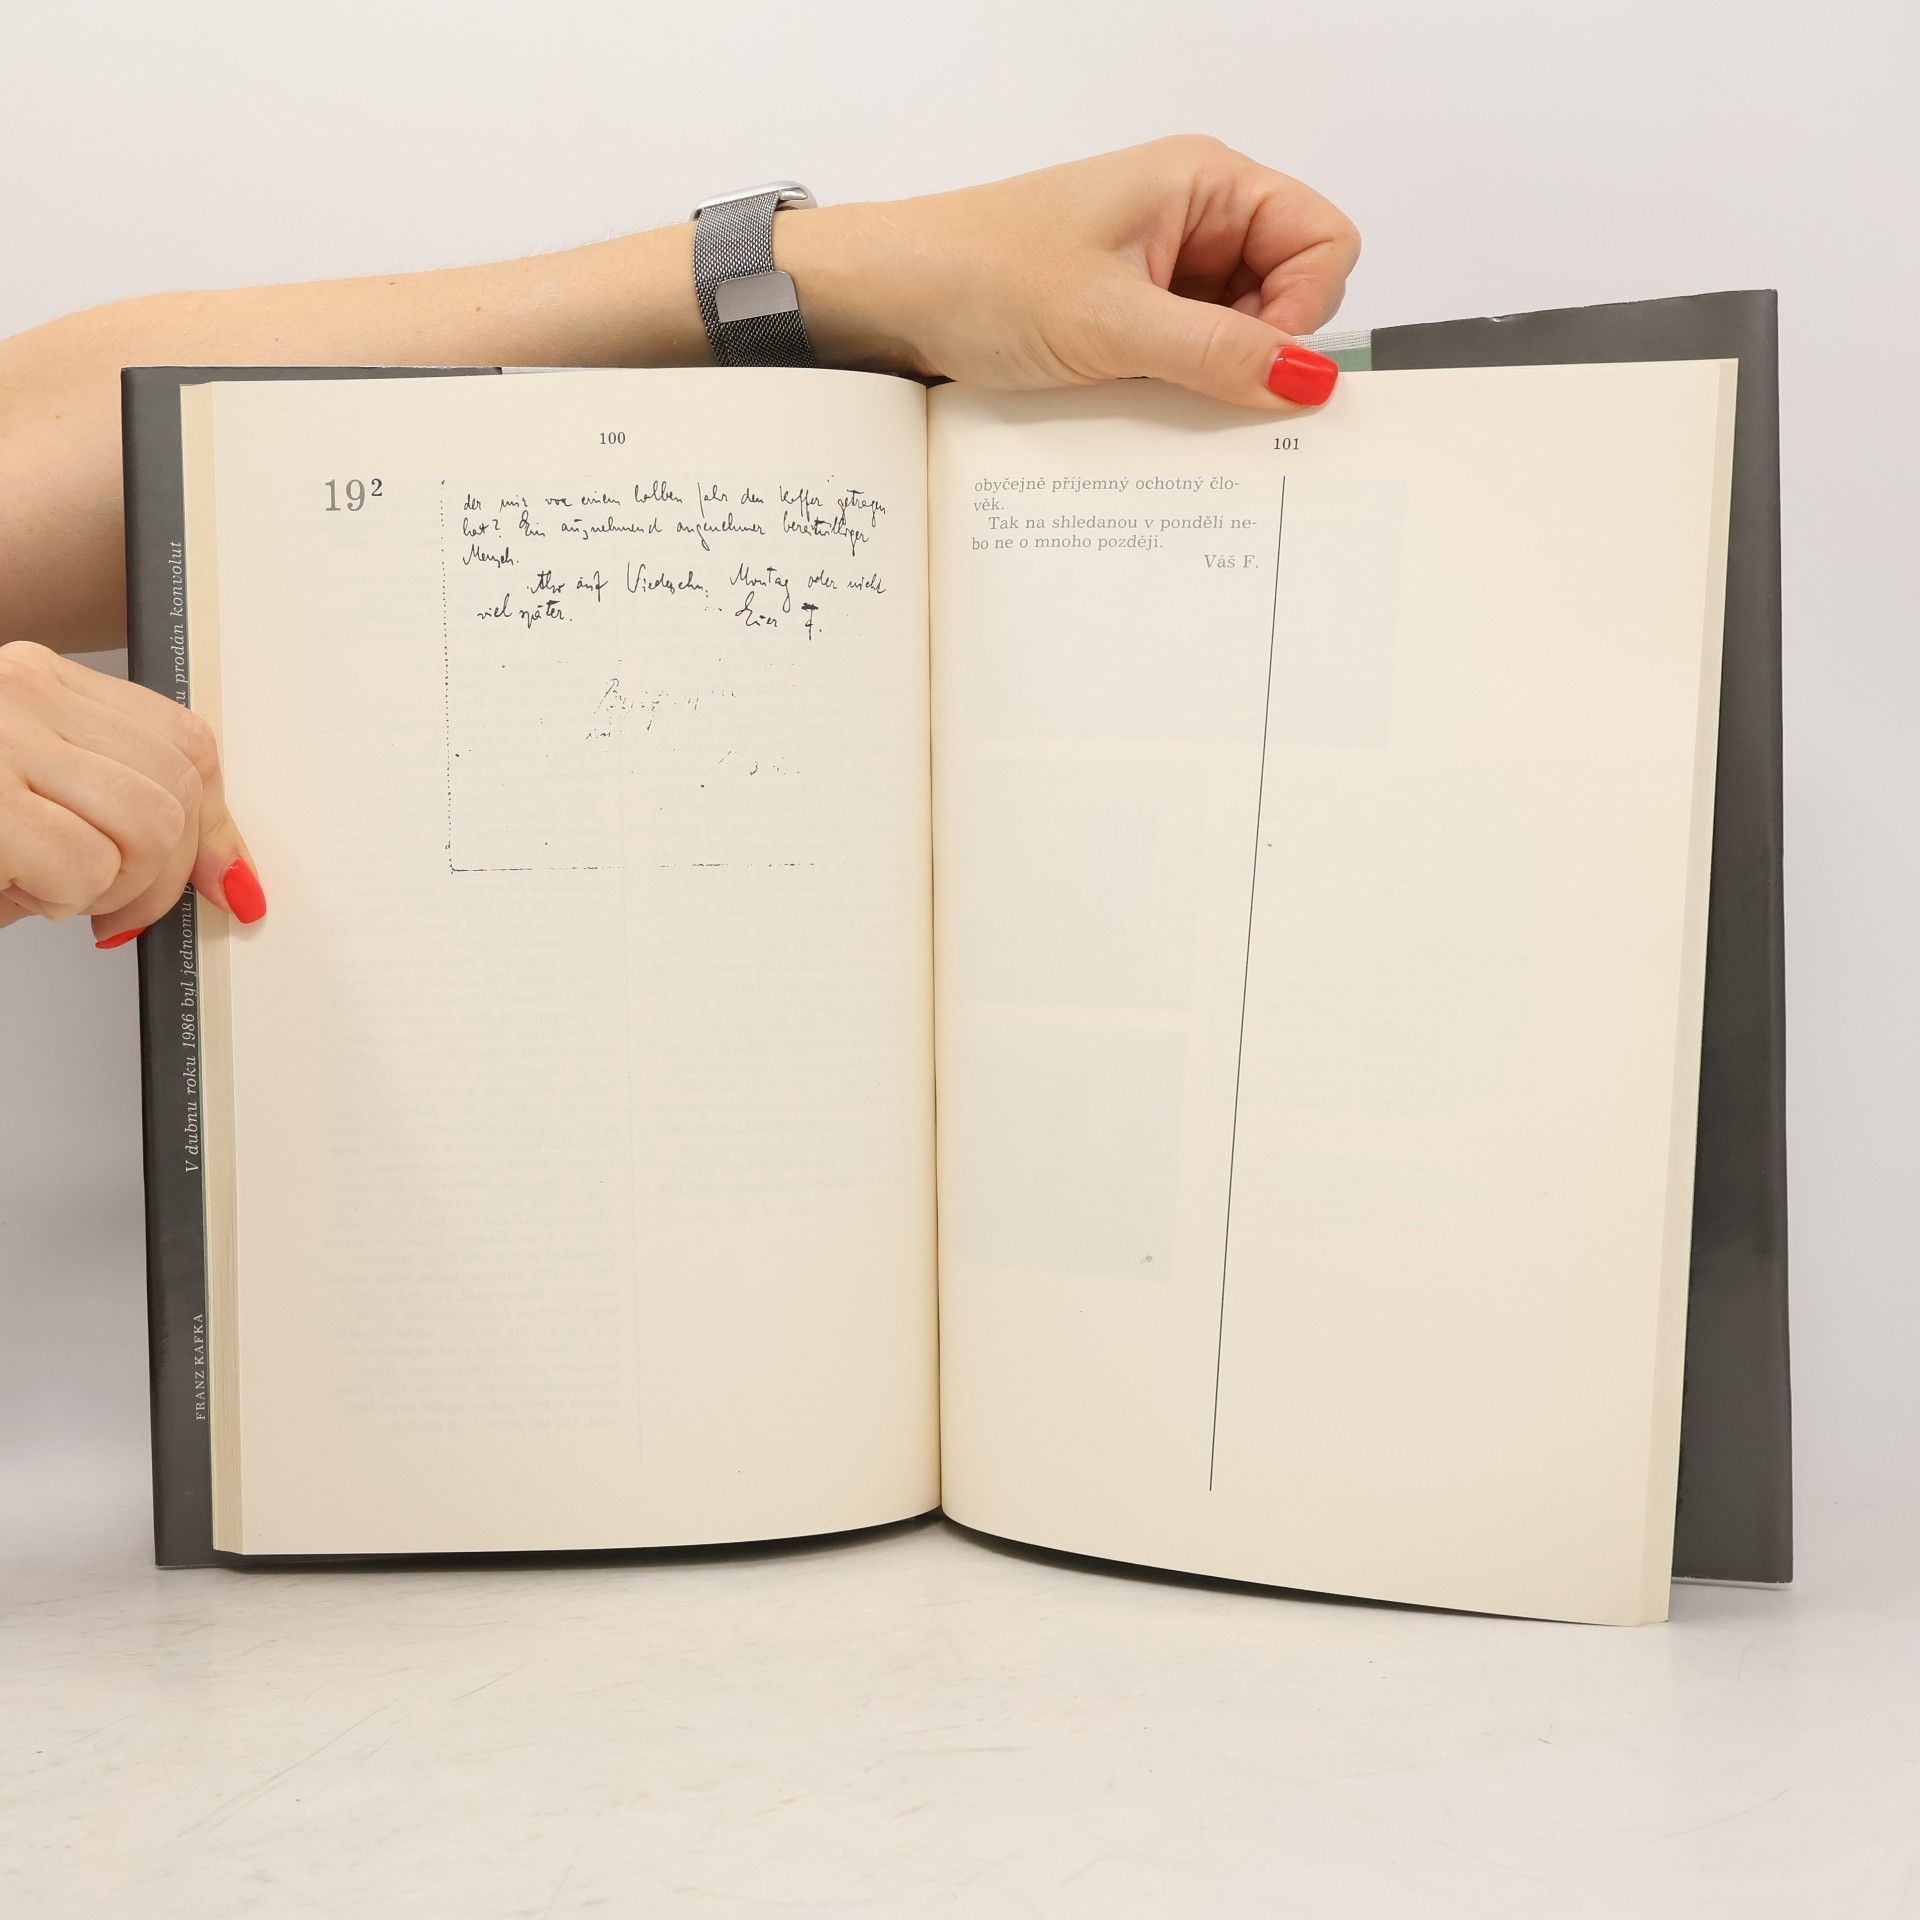 100
19²
der mir vor einem halben Jahr den Koffer getragen
hat? Ein ausnehmend angenehmer bereitwilliger
Mensch.
Also auf Wiedersehn, Montag oder nicht
viel später.
Euer F.
101
obyčejně příjemný ochotný člo-
věk.
Tak na shledanou v pondělí ne-
bo ne o mnoho později.
Váš F.
V dubnu roku 1986 byl jednomu
prodán konvolut
FRANZ KAFKA